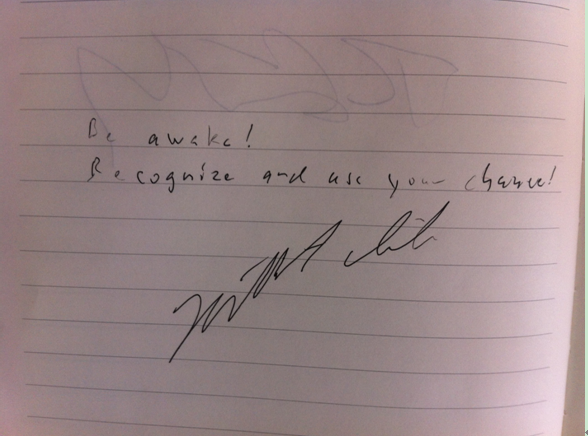 Be awake!
Recognize and use your chance!